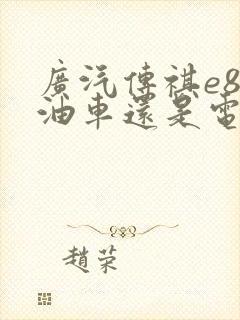 廣汽傳祺e8
油車還是電
趙荣